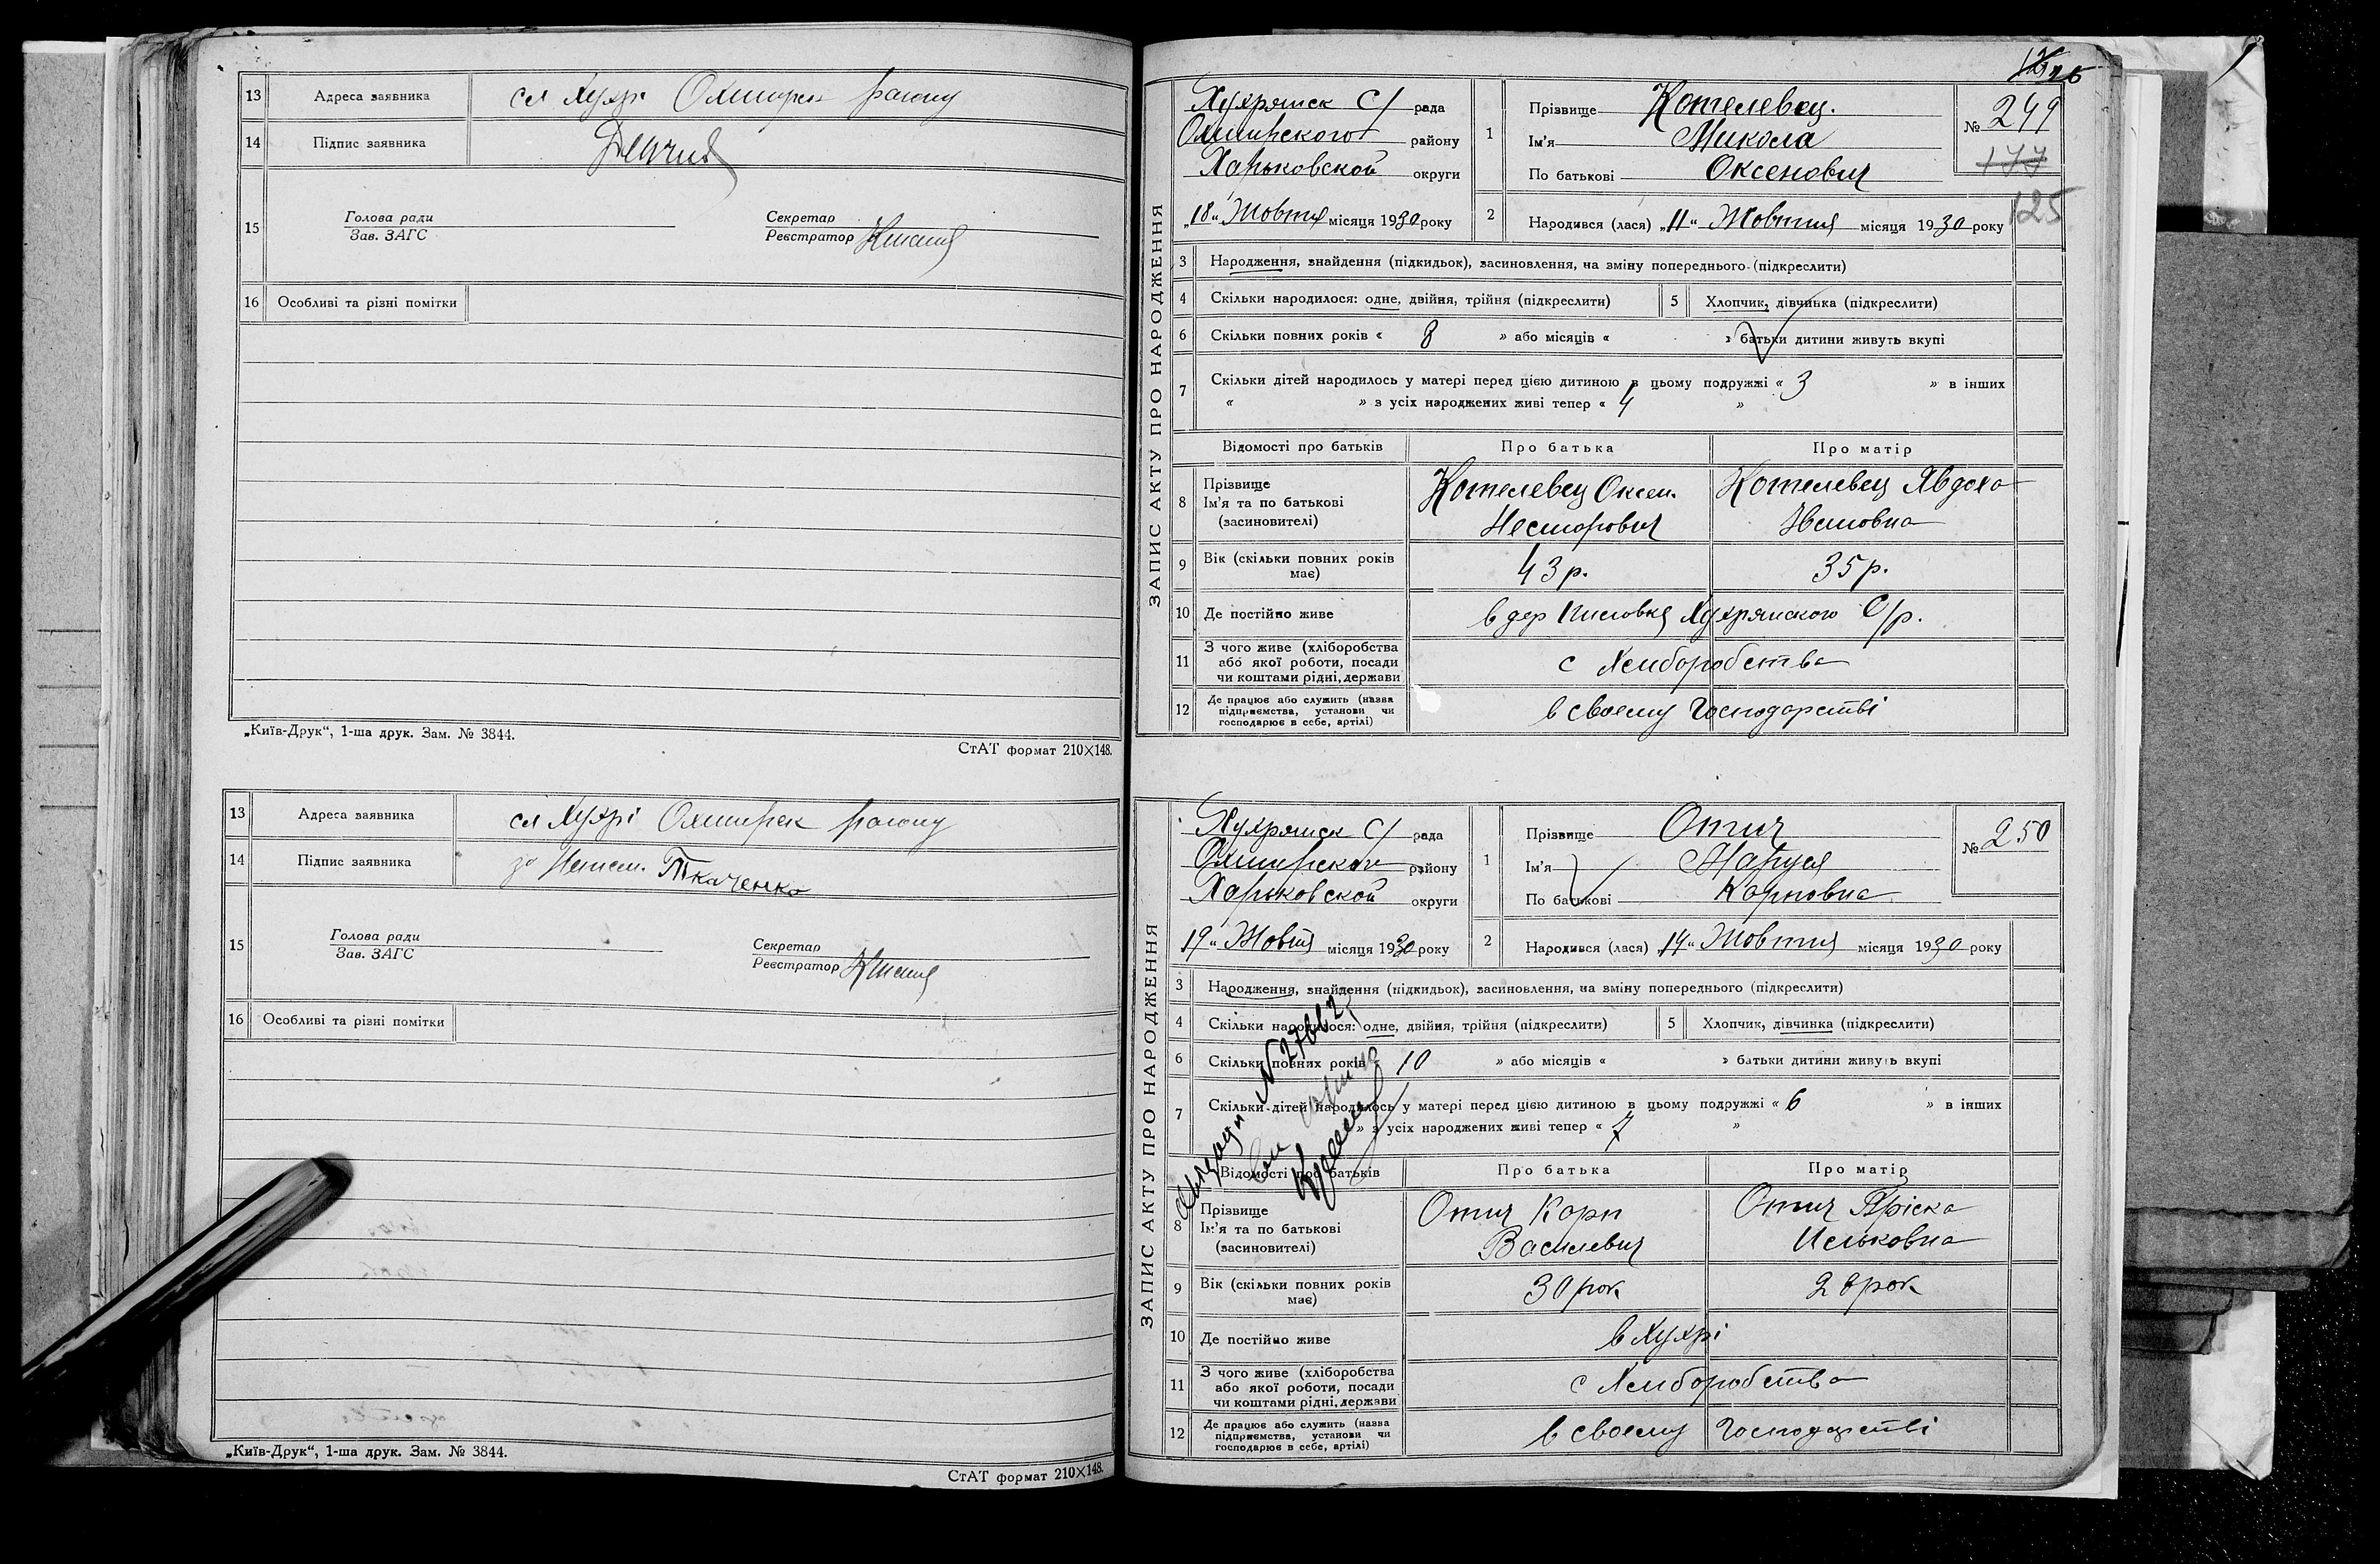 13 Адреса заявника сл Хухрі Охтирськ району
14 Підпис заявника
15 Голова ради Секретар
Зав. ЗАГС Реєстратор
16 Особливі та різні помітки
„Київ-Друк“, 1-ша друк. Зам. № 3844.
СтАТ формат 210×148.
13 Адреса заявника сл Хухрі Охтирськ району
14 Підпис заявника за Ткаченко
15 Голова ради Секретар
Зав. ЗАГС Реєстратор
16 Особливі та різні помітки
„Київ-Друк“, 1-ша друк. Зам. № 3844.
СтАТ формат 210×148.
ЗАПИС АКТУ ПРО НАРОДЖЕННЯ
Хухрянск С/ рада
Охтирского району
Харьковской округи
„18“ Жовтня місяця 1930 року
1 Прізвище Котелевец.
Ім'я Микола
По батькові Оксенович
№ 249
177
125
2 Народився (лася) „11“ Жовтня місяця 1930 року
3 Народження, знайдення (підкидьок), засиновлення, на зміну попереднього (підкреслити)
4 Скільки народилося: одне, двійня, трійня (підкреслити) 5 Хлопчик, дівчинка (підкреслити)
6 Скільки повних років « 8 » або місяців « » батьки дитини живуть вкупі
7 Скільки дітей народилось у матері перед цією дитиною в цьому подружжі « 3 » в інших
« » з усіх народжених живі тепер « 4 »
Відомості про батьків Про батька Про матір
8 Прізвище Ім'я та по батькові (засиновителі) Котелевец Оксен. Несторович Котелевец Явдоха
9 Вік (скільки повних років має) 43 р. 35 р.
10 Де постійно живе в дер Хухрянского С/р.
11 З чого живе (хліборобства або якої роботи, посади чи коштами рідні, держави с Хлиборобства
12 Де працює або служить (назва підприємства, установи чи господарює в себе, артілі) в своему Господарстві
ЗАПИС АКТУ ПРО НАРОДЖЕННЯ
Хухрянск С/ рада
Охтирского району
Харьковской округи
19“ Жовтня місяця 1930 року
1 Прізвище Отич
Ім'я Маруся
По батькові Карповна
№ 250
2 Народився (лася) „14“ Жовтня місяця 1930 року
3 Народження, знайдення (підкидьок), засиновлення, на зміну попереднього (підкреслити)
4 Скільки народилося: одне, двійня, трійня (підкреслити) 5 Хлопчик, дівчинка (підкреслити)
6 Скільки повних років 10 » або місяців « » батьки дитини живуть вкупі
7 Скільки дітей народилось у матері перед цією дитиною в цьому подружжі « 6 » в інших
» з усіх народжених живі тепер « 7 »
Відомості про батьків Про батька Про матір
8 Прізвище Ім'я та по батькові (засиновителі) Отич Карп Василевич Отич Пріска Ильковна
9 Вік (скільки повних років має) 30 рок 28 рок
10 Де постійно живе в Хухрі
11 З чого живе (хліборобства або якої роботи, посади чи коштами рідні, держави с Хлиборобства
12 Де працює або служить (назва підприємства, установи чи господарює в себе, артілі) в своему Господарстві